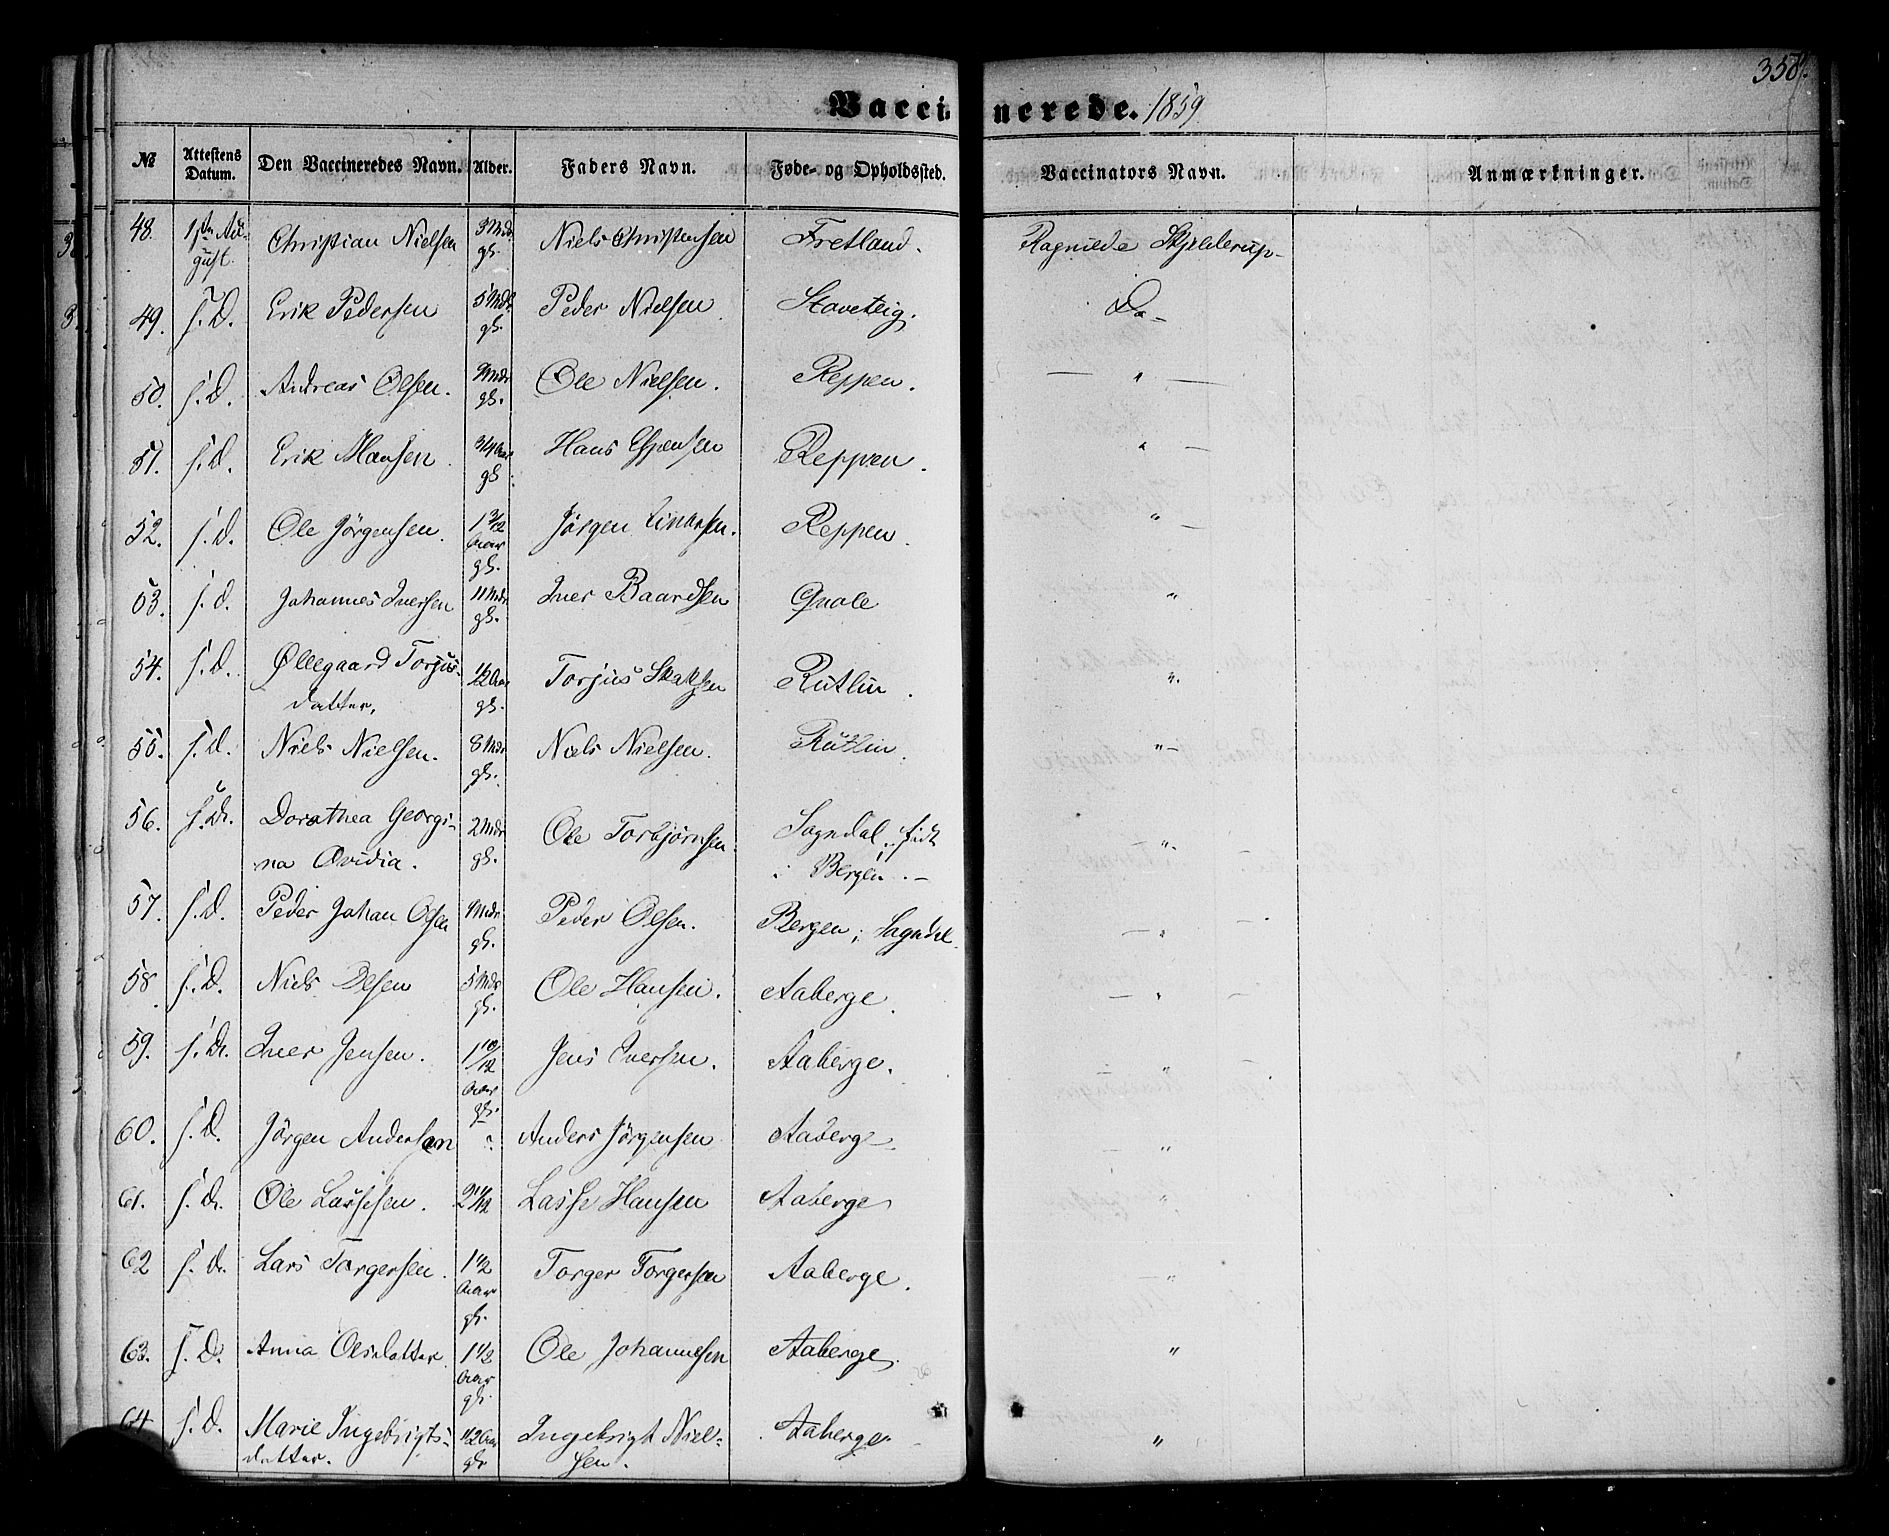 358.
Vaccinerede. 1859
№ Attestens Datum. Den Vaccineredes Navn. Alder. Faders Navn. Føde- og Opholdssted. Vaccinators Navn. Anmærkninger.
48. 1ste August. Christian Nielsen 3 Mdr gl. Niels Christensen Fretland. Ragnilda Skjelderup
49. s. D. Erik Pedersen 5 Mdr gl. Peder Nielsen Staveteig. Do
50. s. D. Andreas Olsen. 9 Mdr gl. Ole Nielsen. Reppen. — " —
51. s. D. Erik Hansen. 3/4 Aar gl. Hans Espensen Reppen. "
52. s. D. Ole Jörgensen. 1 3/12 Aar gl. Jörgen Einarsen. Reppen. " —
53. s. d. Johannes Iversen 11 Mdr gl. Iver Baardsen Qvale "
54. s. D. Øllegaard Torjus-
datter, 1/2 Aar gl. Torjus Rutlin. "
55. s. D. Niels Nielsen. 8 Mdr gl. Niels Nielsen. Rutlin. " —
56. s. D. Dorothea Georgi-
na Ovidia. 2 Mdr gl. Ole Torbjørnsen. Sogndal, født
i Bergen. — — " —
57. s. D. Peder Johan Olsen 9 Mdr gl. Peder Olsen. Bergen; Sogndal. — " —
58. s. D. Niels Olsen 5 Mdr gl. Ole Hansen. Aaberge. — " —
59. s. D. Iver Jensen. 1 10/12 Aar gl. Jens Iversen. Aaberge. — "
60. s. D. Jörgen Andersen " Anders Jörgensen Aaberge. — "
61. s. D. Ole Lassesen. 2 11/12 Lasse Hansen Aaberge "
62 s. D. Lars Torgersen. 1 1/2 Aar gl. Torger Torgersen Aaberge. — "
63. s. D. Anna Olsdatter. 1 1/2 Aar gl. Ole Johannesen Aaberge. "
64. s. D. Marie Ingebrigts-
datter. 1/2 Aar gl. Ingebrigt Niel-
sen. Aaberge. "